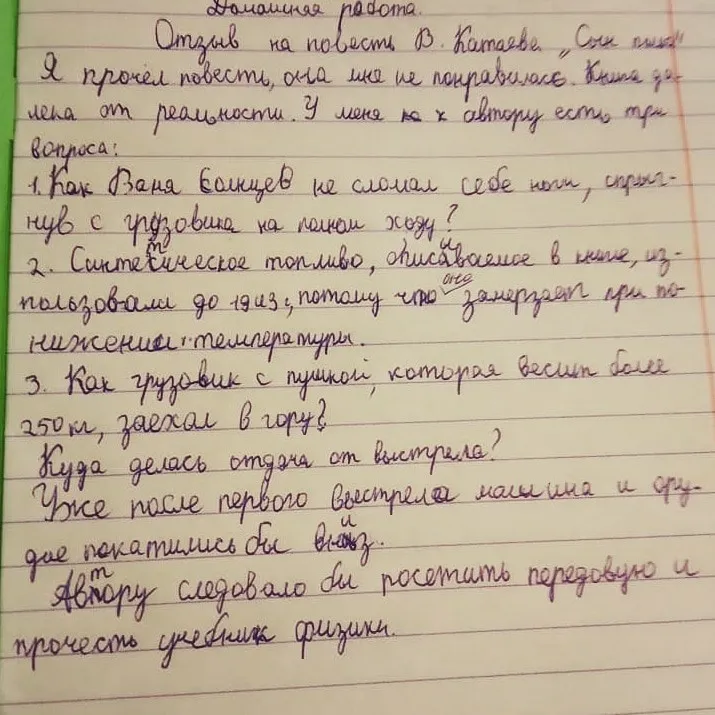 Домашняя работа.
Отзыв на повесть В. Катаева „Сын полка"
Я прочёл повесть, она мне не понравилась. Книга да-
лека от реальности. У меня к автору есть три
вопроса:
1. Как Ваня Солнцев не сломал себе ноги, спрыг-
нув с грузовика на полном ходу?
2. Синтетическое топливо, описываемое в книге, из-
пользовали до 1943 г, потому что оно замерзает при по-
нижении температуры.
3. Как грузовик с пушкой, которая весит более
250 кг, заехал в гору?
Куда делась отдача от выстрела?
Уже после первого выстрела машина и ору-
дие покатились бы вниз.
Автору следовало бы посетить передовую и
прочесть учебник физики.